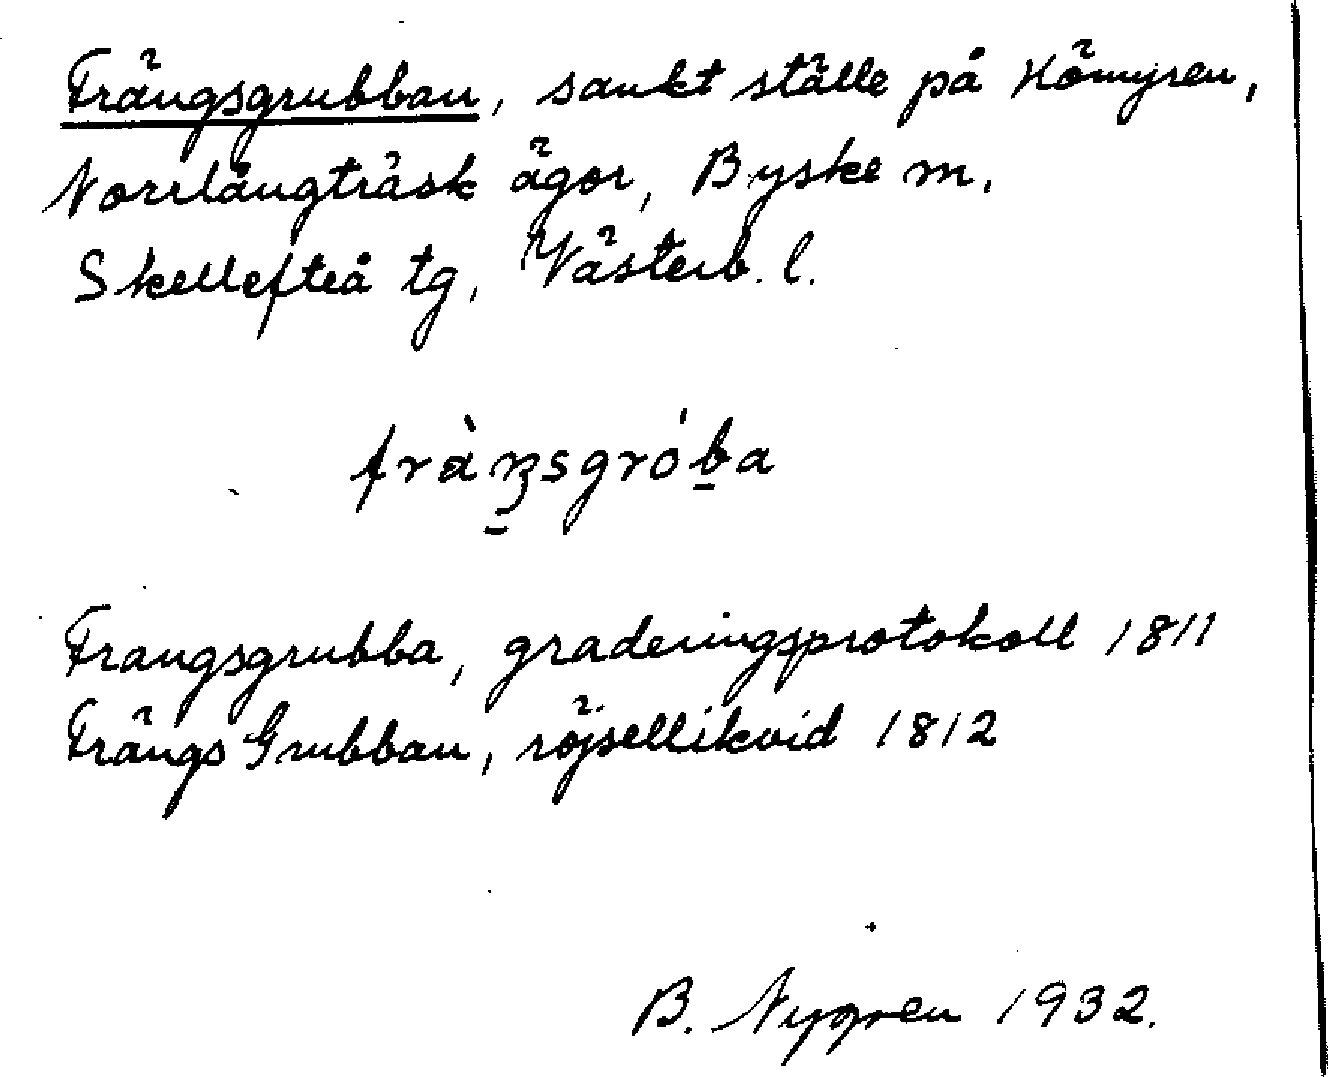 Frängsgrubban, sankt ställe på Hömyren,
Norrlångträsk ägor, Byske m.
Skellefteå tg, Västerb. l.
fràŋsgróba
Frangsgrubba, graderingsprotokoll 1811
Frängs Grubban, röjsellikvid 1812
B. Nygren 1932.